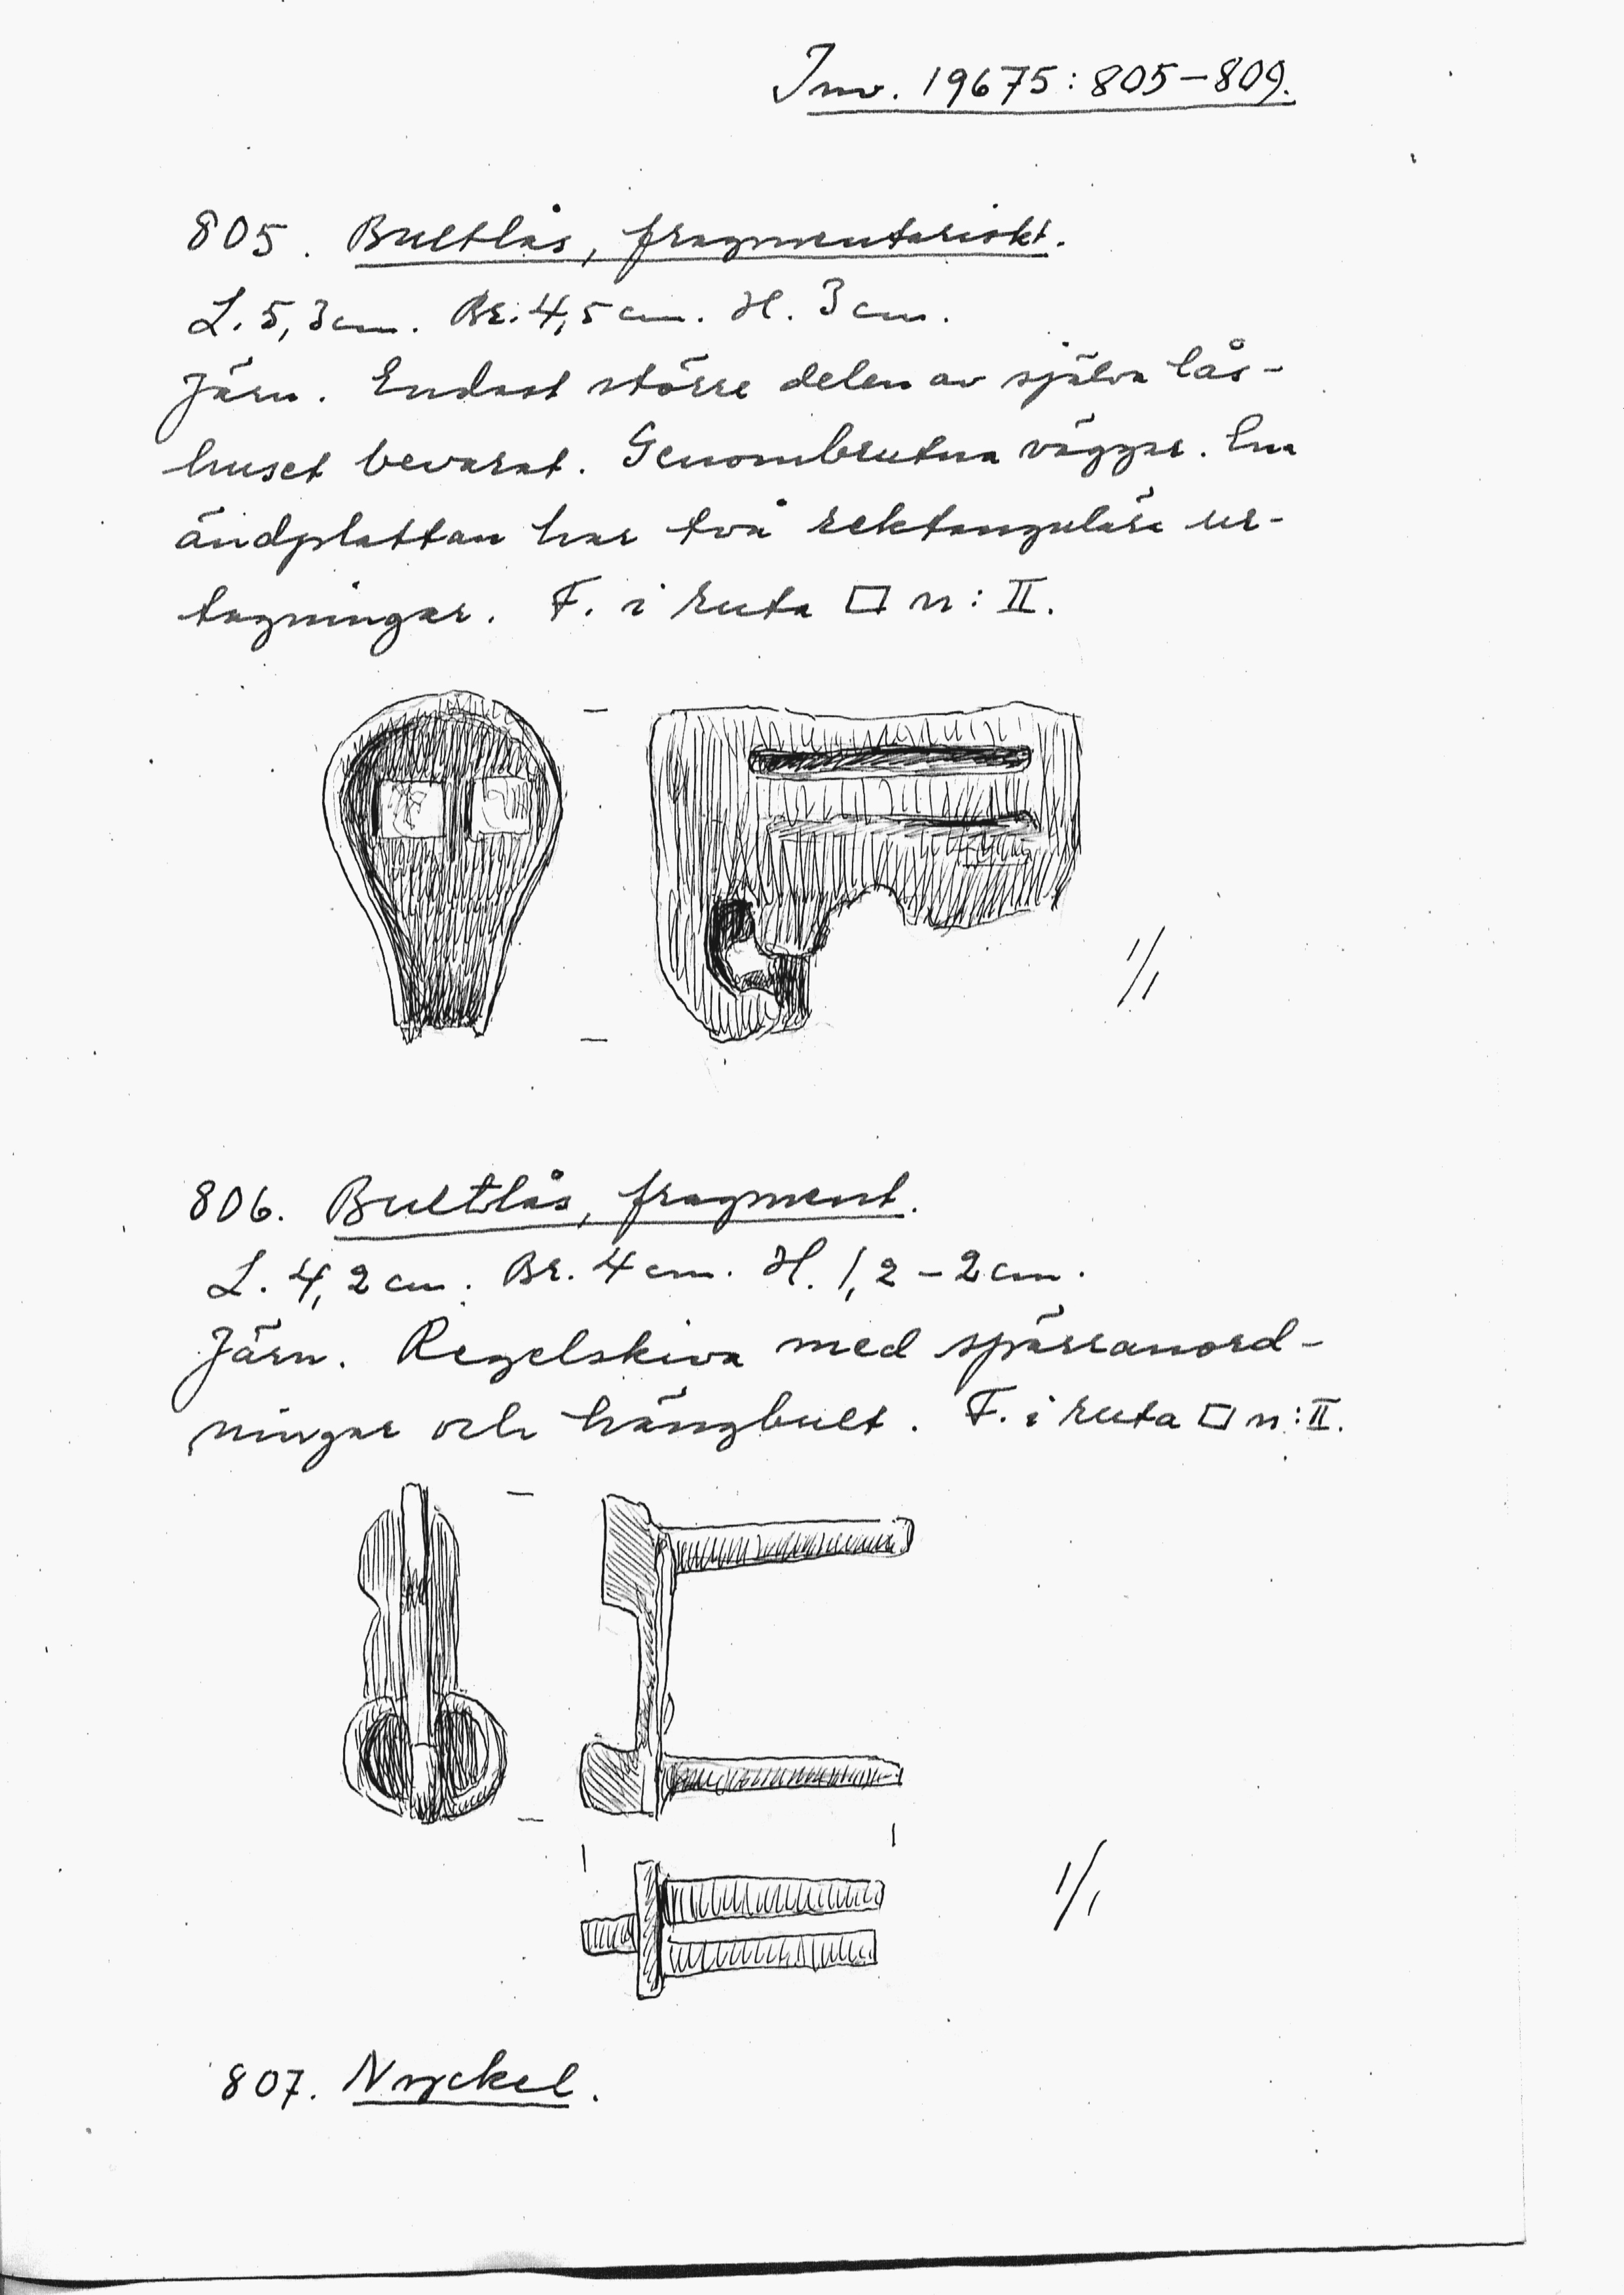 Inv. 19675:805–809.
805. Bultlås, fragmentariskt.
L. 5,3 cm. Br. 4,5 cm. H. 3 cm.
Järn. Endast större delen av själva lås-
huset bevarat. Genombrutna väggar. Ena
ändplattan har två rektangulära ur-
tagningar. F. i ruta □ n: II.
1/1
806. Bultlås, fragment.
L. 4,2 cm. Br. 4 cm. H. 1,2 – 2 cm.
Järn. Regelskiva med spärranord-
ningar och hängbult. F. i ruta □ n: II.
1/1
807. Nyckel.